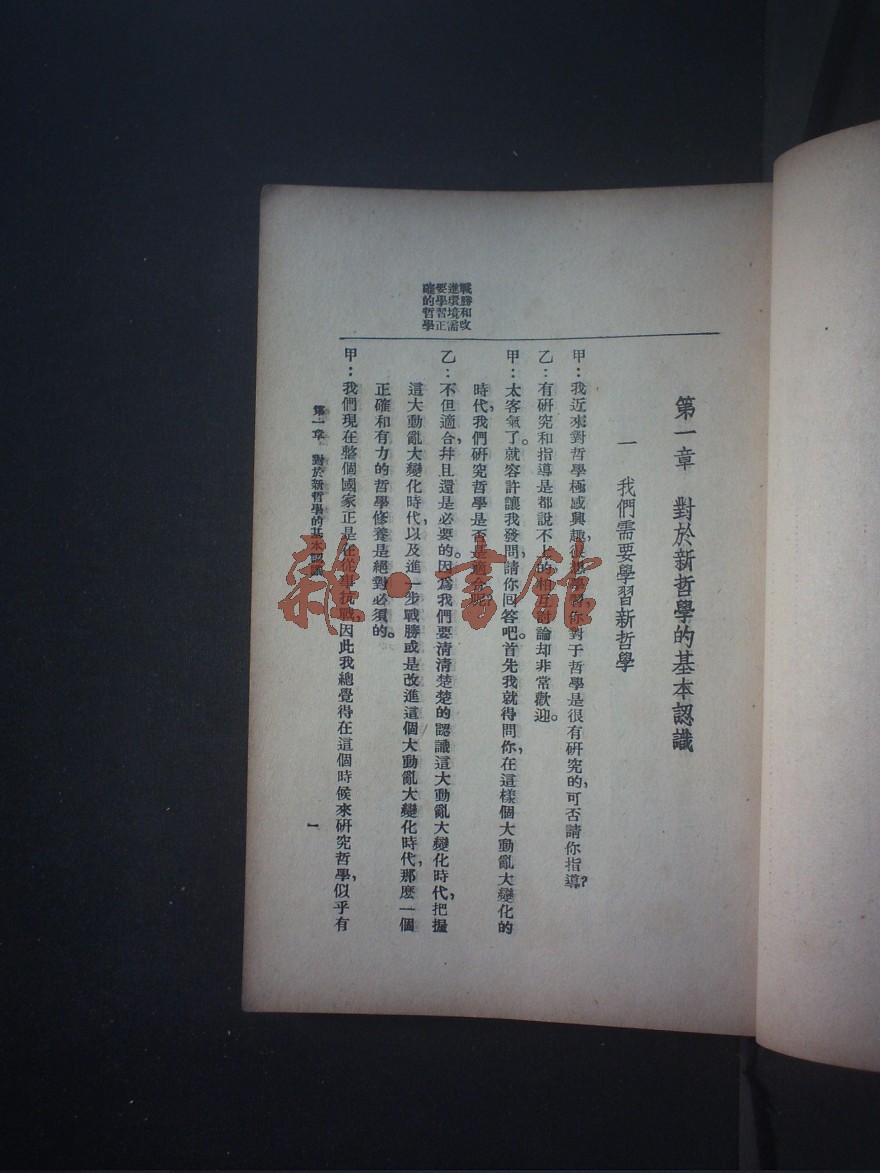 第一章　對於新哲學的基本認識
一　我們需要學習新哲學
甲：我近來對哲學極感興趣，很想學習。你對于哲學是很有硏究的，可否請你指導？
乙：有硏究和指導是都說不上的，相互討論却非常歡迎。
甲：太客氣了。就容許讓我發問請你回答吧。首先我就得問你，在這樣個大動亂大變化的
時代，我們硏究哲學是否是適合呢？
戰勝和改
進環境需
要學習正
確的哲學
乙：不但適合，幷且還是必要的。因爲我們要淸淸楚楚的認識這大動亂大變化時代，把握
這大動亂大變化時代，以及進一步戰勝或是改進這個大動亂大變化時代，那麽一個
正確和有力的哲學修養是絕對必須的。
甲：我們現在整個國家正是在從事抗戰，因此我總覺得在這個時候來硏究哲學，似乎有
第一章　對於新哲學的基本認識
一
雜·書館